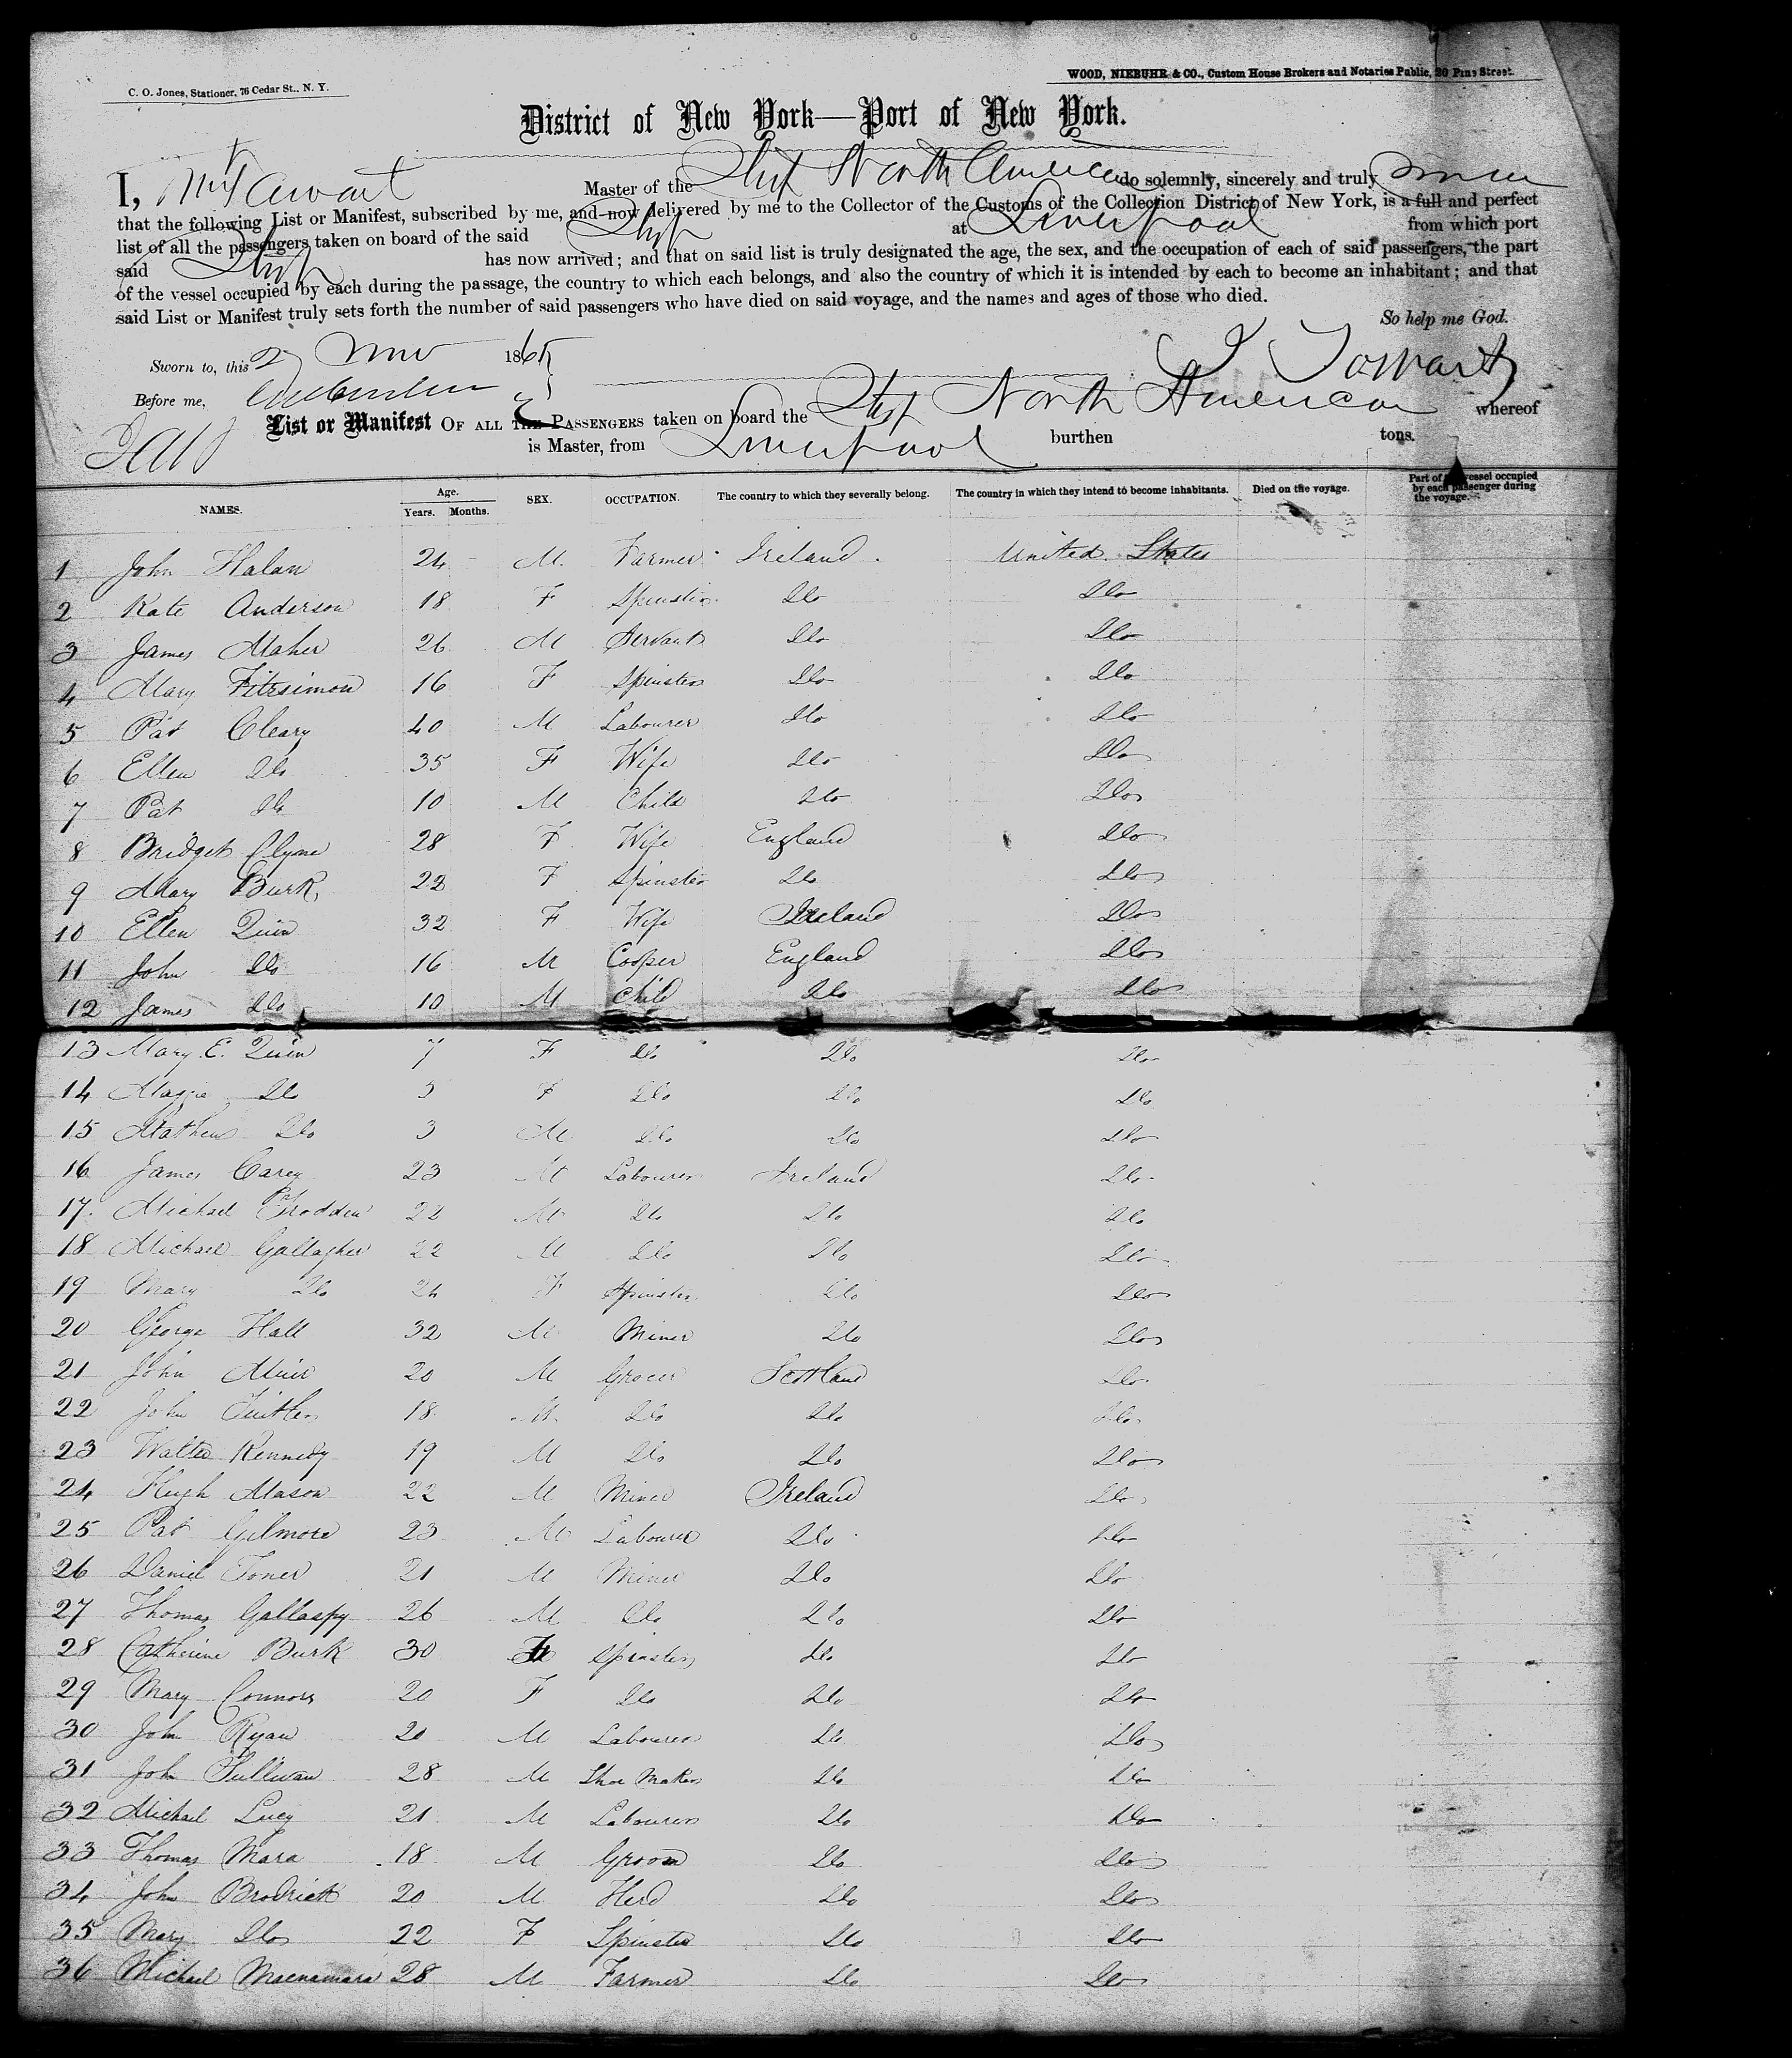 C. O. Jones, Stationer, 76 Cedar St., N. Y.
WOOD, NIEBUHR & CO., Custom House Brokers and Notaries Public, 20 Pine Street.
District of New York—Port of New York.
I, Master of the Ship North American do solemnly, sincerely and truly swear
that the following List or Manifest, subscribed by me, and now delivered by me to the Collector of the Customs of the Collection District of New York, is a full and perfect
list of all the passengers taken on board of the said Ship at Liverpool from which port
said Ship has now arrived; and that on said list is truly designated the age, the sex, and the occupation of each of said passengers, the part
of the vessel occupied by each during the passage, the country to which each belongs, and also the country of which it is intended by each to become an inhabitant; and that
said List or Manifest truly sets forth the number of said passengers who have died on said voyage, and the names and ages of those who died.
So help me God.
Sworn to, this 2 Nov 1865
Before me,
List or Manifest OF ALL THE PASSENGERS taken on board the Ship North American whereof
is Master, from Liverpool burthen tons.
NAMES. Age. Years. Months. SEX. OCCUPATION. The country to which they severally belong. The country in which they intend to become inhabitants. Died on the voyage. Part of the vessel occupied by each passenger during the voyage.
1 John Halan 24 M. Farmer Ireland United States
2 Kate Anderson 18 F Spinster Do Do
3 James Maher 26 M Servant Do Do
4 Mary Fitzsimon 16 F Spinster Do Do
5 Pat Cleary 40 M Labourer Do Do
6 Ellen Do 35 F Wife Do Do
7 Pat Do 10 M Child Do Do
8 Bridget Clyne 28 F Wife England Do
9 Mary Burk 22 F Spinster Do Do
10 Ellen Quin 32 F Wife Ireland Do
11 John Do 16 M Cooper England Do
12 James Do 10 M Child Do Do
13 Mary E. Quin 7 F Do Do Do
14 Maggie Do 5 F Do Do Do
15 Mathew Do 3 M Do Do Do
16 James Carey 23 M Labourer Ireland Do
17 Michael 22 M Do Do Do
18 Michael Gallagher 22 M Do Do Do
19 Mary Do 24 F Spinster Do Do
20 George Hall 32 M Miner Do Do
21 John Muir 20 M Grocer Scotland Do
22 John 18 M Do Do Do
23 Walter Kennedy 19 M Do Do Do
24 Hugh Mason 22 M Miner Ireland Do
25 Pat Gilmore 23 M Labourer Do Do
26 Daniel Toner 21 M Miner Do Do
27 Thomas Gallaspy 26 M Do Do Do
28 Catherine Burk 30 F Spinster Do Do
29 Mary Connors 20 F Do Do Do
30 John Ryan 20 M Labourer Do Do
31 John Sullivan 28 M Shoe Maker Do Do
32 Michael Lucy 21 M Labourer Do Do
33 Thomas Mara 18 M Groom Do Do
34 John Brodrick 20 M Herd Do Do
35 Mary Do 22 F Spinster Do Do
36 Michael Macnamara 28 M Farmer Do Do